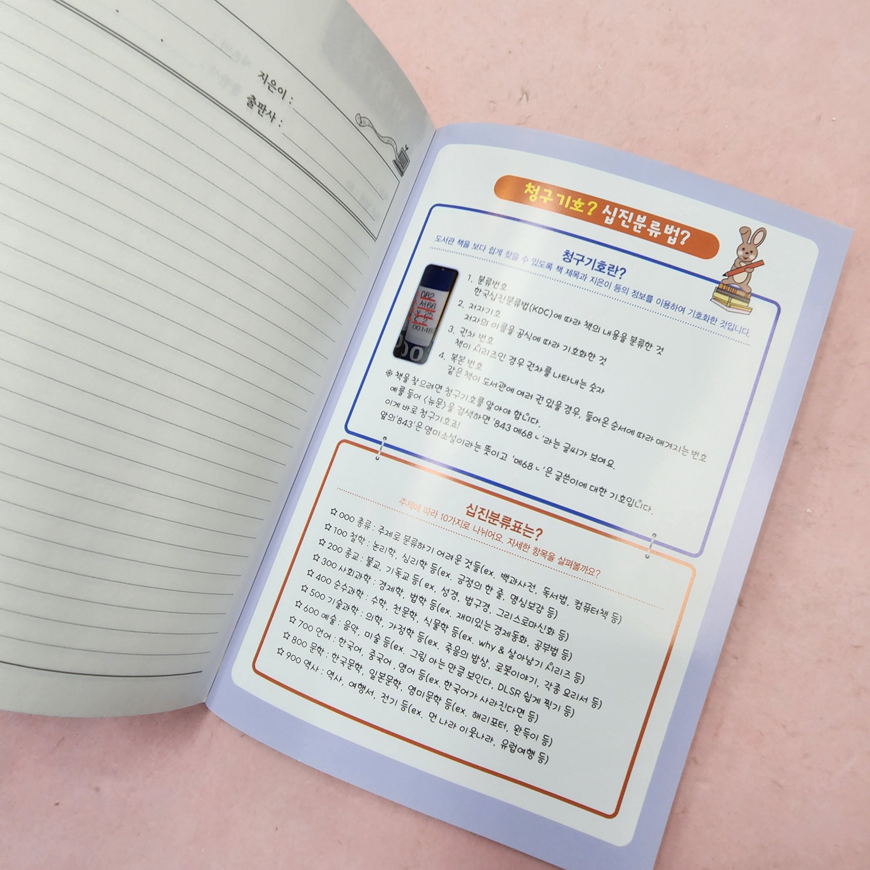 지은이 :
출판사 :
청구기호? 십진분류법?
청구기호란?
도서관 책을 보다 쉽게 찾을 수 있도록 책 제목과 지은이 등의 정보를 이용하여 기호화한 것입니다.
1. 분류번호
한국십진분류법(KDC)에 따라 책의 내용을 분류한 것
2. 저자기호
저자의 이름을 공식에 따라 기호화한 것
3. 권차 번호
책이 시리즈인 경우 권차를 나타내는 숫자
4. 복본 번호
같은 책이 도서관에 여러 권 있을 경우, 들어온 순서에 따라 매겨지는 번호
※ 책을 찾으려면 청구기호를 알아야 합니다.
예를 들어 (뉴문)을 검색하면 '843 메68ㄴ'라는 글씨가 보여요.
이게 바로 청구기호죠!
앞의'843'은 영미소설이라는 뜻이고 '메68ㄴ'은 글쓴이에 대한 기호입니다.
082
십진분류표는?
주제에 따라 10가지로 나뉘어요. 자세한 항목을 살펴볼까요?
☆ 000 총류 : 주제로 분류하기 어려운 것들(ex. 백과사전, 독서법, 컴퓨터책 등)
☆ 100 철학 : 논리학, 심리학 등(ex. 긍정의 한 줄, 명심보감 등)
☆ 200 종교 : 불교, 기독교 등( ex. 성경, 법구경, 그리스로마신화 등)
☆ 300 사회과학 : 경제학, 법학 등(ex. 재미있는 경제동화, 공부법 등)
☆ 400 순수과학 : 수학, 천문학, 식물학 등(ex. why & 살아남기 시리즈 등)
☆ 500 기술과학 : 의학, 가정학 등(ex. 죽음의 밥상, 로봇이야기, 각종 요리서 등)
☆ 600 예술 : 음악, 미술 등(ex. 그림 아는 만큼 보인다, DLSR 쉽게 찍기 등)
☆ 700 언어 : 한국어, 중국어, 영어 등(ex. 한국어가 사라진다면 등)
☆ 800 문학 : 한국문학, 일본문학, 영미문학 등(ex. 해리포터, 완득이 등)
☆ 900 역사 : 역사, 여행서, 전기 등(ex. 먼 나라 이웃나라, 유럽여행 등)